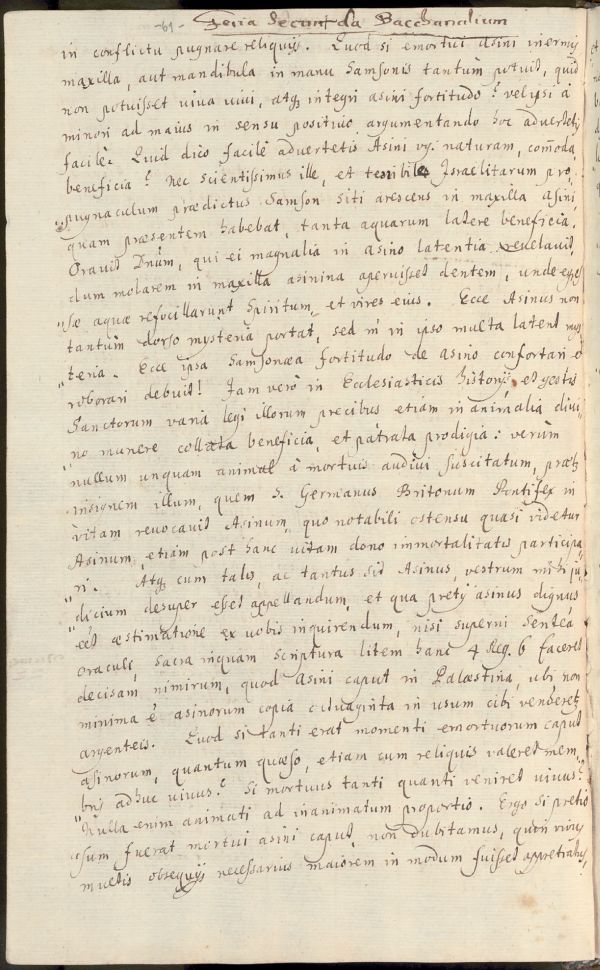 -61- Feria Secunda Bacchanalium
in conflictu pugnare reliquijs. Quod si emortui asini inermis
maxilla, aut mandibula in manu Samsonis tantùm potuit, quid
non potuisset viva vivi, atq; integri asini fortitudo? vel ipsi à
minori ad maius in sensu positivo argumentando hoc advertetis
facilè. Quid dico facilè advertetis Asini vz. naturam, com̄oda
beneficia? nec scientissimus ille, et terribile Israelitarum pro
pugnaculum prædictus Samson siti arescens in maxilla asini,
quam præsentem habebat, tanta aquarum latere beneficia.
Oravit Dnum, qui ei magnalia in asino latentia revelavit,
dum molarem in maxilla asinina aperuisset dentem, unde egres
sæ aquæ refocillarunt Spiritum, et vires eius. Ecce Asinus non
tantùm dorso mysteria portat, sed in ipso multa latent mys
teria. Ecce ipsa Samsonæa fortitudo de asino confortari et
roborari debuit! Jam verò in Ecclesiasticis historijs et gestis
Sanctorum varia legi illorum precibus etiam in animalia divi
no munere collata beneficia, et patrata prodigia: verùm
nullum unquam animal à mortuis audivi suscitatum, præter
insignem illum, quem S. Germanus Britonum Pontifex in
vitam revocavit Asinum, quo notabili ostensu quasi videtur
Asinum, etiam post hanc vitam dono immortalitatis participa
ri. Atq; cum talis, ac tantus sit Asinus, vestrum mihi ju
dicium desuper esset appellandum, et qua pretij asinus dignus
est æstimatione ex vobis inquirendum, nisi superni sententia
oraculi, sacra inquam Scriptura litem hanc 4 Reg. 6 faceret
decisam nimirum, quod Asini caput in Palæstina, ubi non
minima è asinorum copia octuaginta in usum cibi venderetur
argenteis. Quod si tanti erat momenti emortuorum caput
asinorum, quantum quæso, etiam cum reliquis valeret mem
bris adhuc vivus? Si mortuus tanti quanti veniret vivus?
Nulla enim animati ad inanimatum proportio. Ergo si pretio
sum fuerat mortui asini caput, non dubitamus, quin vivus
multis obsequijs necessarius maiorem in modum fuisset appretiatus,